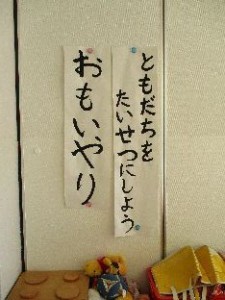 ともだちを
たいせつにしよう
おもいやり